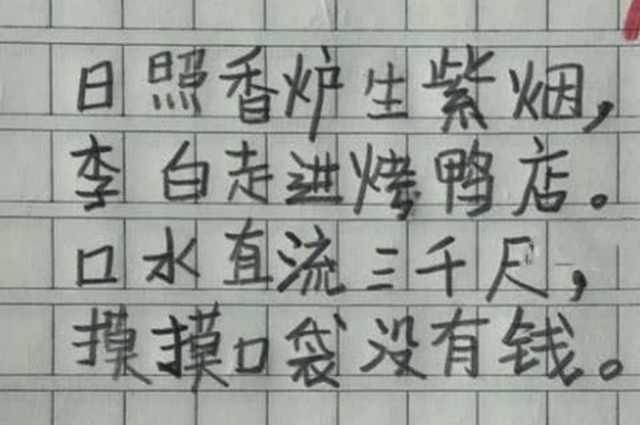 日照香炉生紫烟,
李白走进烤鸭店。
口水直流三千尺,
摸摸口袋没有钱。